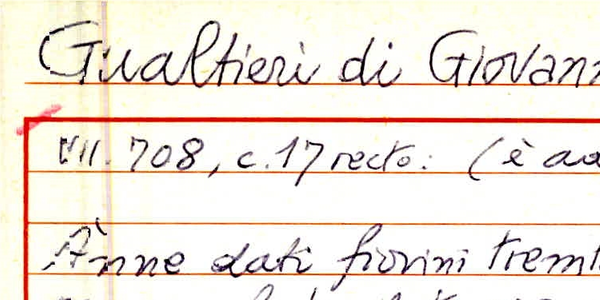 Gualtieri di Giovann
VII. 708, c. 17 recto: (è
Ànne dati fiorini trem